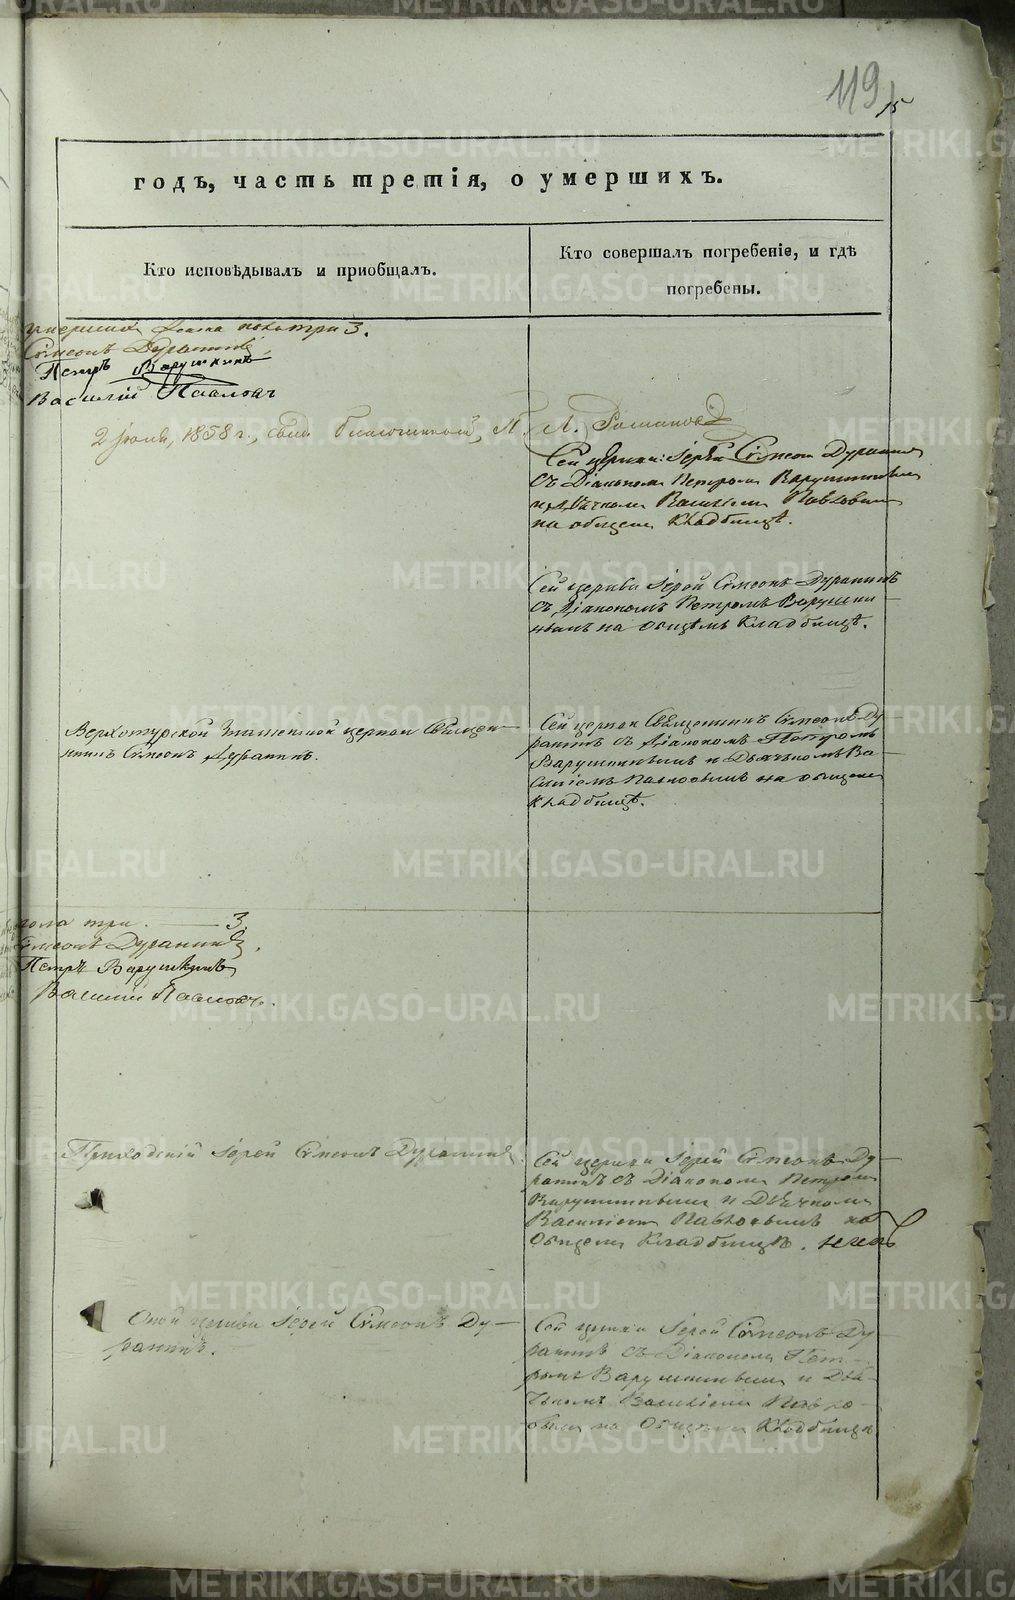 119
15
годъ, часть третія, о умершихъ.
Кто исповѣдывалъ и приобщалъ.
Кто совершалъ погребеніе, и гдѣ
погребены.
3.
Симеонъ Дуранинъ
Петръ Варушкинъ
Василій Павловъ
2 1858 г., Романовъ
Сей церкви Іерей Симеонъ Дуранинъ
съ Діакономъ Петромъ Варушкинымъ
Василіемъ Павловымъ
на общемъ Кладбищѣ.
Сей церкви Іерей Симеонъ Дуранинъ
съ Діакономъ Петромъ Варушки-
нымъ на общемъ Кладбищѣ.
Верхотурской Знаменской церкви Священ-
никъ Симеонъ Дуранинъ.
Сей церкви Священникъ Симеонъ Ду-
ранинъ съ Діакономъ Петромъ
Варушкинымъ и Дьячкомъ Ва-
силіемъ Павловымъ на общемъ
Кладбищѣ.
пола три. — 3.
Симеонъ Дуранинъ.
Петръ Варушкинъ
Василій Павловъ.
Приходскій Іерей Симеонъ Дуранинъ.
Сей церкви Іерей Симеонъ Ду-
ранинъ съ Діакономъ Петромъ
Варушкинымъ и Дьячкомъ
Василіемъ Павловымъ на
Общемъ Кладбищѣ.
Оной церкви Іерей Симеонъ Ду-
ранинъ.
Сей церкви Іерей Симеонъ Ду-
ранинъ съ Діакономъ Пет-
ромъ Варушкинымъ и Дья-
чкомъ Василіемъ Павло-
вымъ на Общемъ Кладбищѣ
METRIKI.GASO-URAL.RU